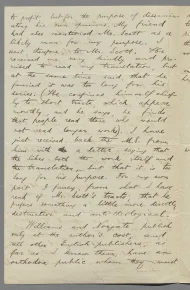 to profit but for the purpose of disseminating
along his own opinions. My friend
had also mentioned Mr. Scott as a
likely man for my purpose, I
went therefore to Mr. Scott. He
received me very kindly and
to read my translation. But
at the same time said that he
feared it was too long for his
series. (He confines himself only
to short tracts, which appear
monthly and he says he finds
that people read them who would
not read longer works). I have
just received back the M.S. from
him with a letter, saying that
he likes both the work itself and
the translation, but that it is too
long for his purpose. For my own
part I fancy, from what I have
read of Mr. Scott's tracts, that he
prefers something a little more directly
destructive and anti-theological.
Williams and Norgate publish
only at the author's cost, and
all other English publishers, as
far as I know them, they are
orthodox public whom they must